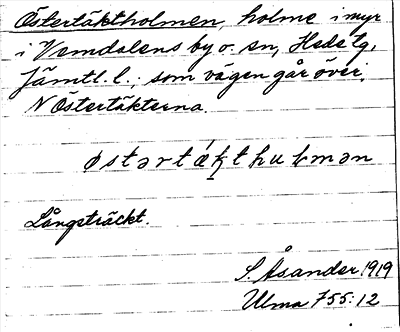 Östertäktholmen, holme i myr
i Vemdalens by o. sn, Hede tg,
Jämtl. l.; som vägen går över,
N Östertäkterna.
østərtækthulmən
Långsträckt.
S. Åsander 1919
Ulma 755:12